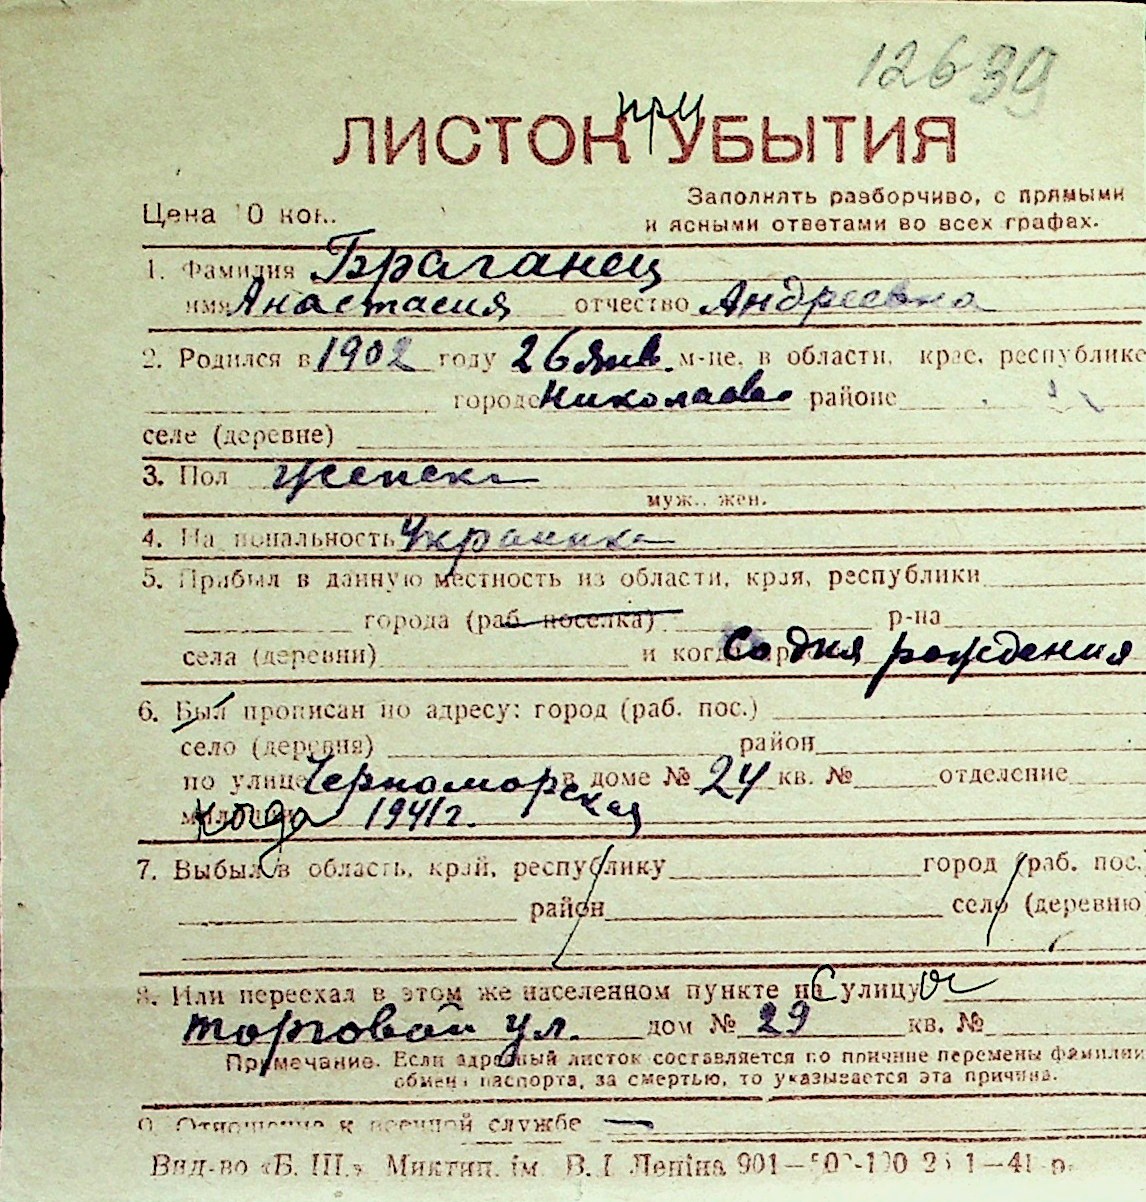 12639
ЛИСТОК при УБЫТИЯ
Цена 10 коп.
Заполнять разборчиво, с прямыми
и ясными ответами во всех графах.
1. Фамилия Браганец
имя Анастасия отчество Андреевна
2. Родился в 1902 году 26 янв. м-це, в области, крае, республике
городе Николаеве районе
селе (деревне)
3. Пол женска
муж., жен.
4. Национальность Украинка
5. Прибыл в данную местность из области, края, республики
города (раб. поселка) р-на
села (деревни) и когда Со дня рождения
6. Был прописан по адресу: город (раб. пос.)
село (деревня) район
по улице Черноморская в доме № 24 кв. № отделение
милиции когда 1941 г.
7. Выбыл в область, край, республику город (раб. пос.
район село (деревню
8. Или переехал в этом же населенном пункте на С улицу ы
Торговой ул. дом № 29 кв. №
Примечание. Если адресный листок составляется по причине перемены фамилии
обмена паспорта, за смертью, то указывается эта причина.
9. Отношение к военной службе —
Вид-во «Б. Ш.» Миктип. ім. В. І. Леніна 901—